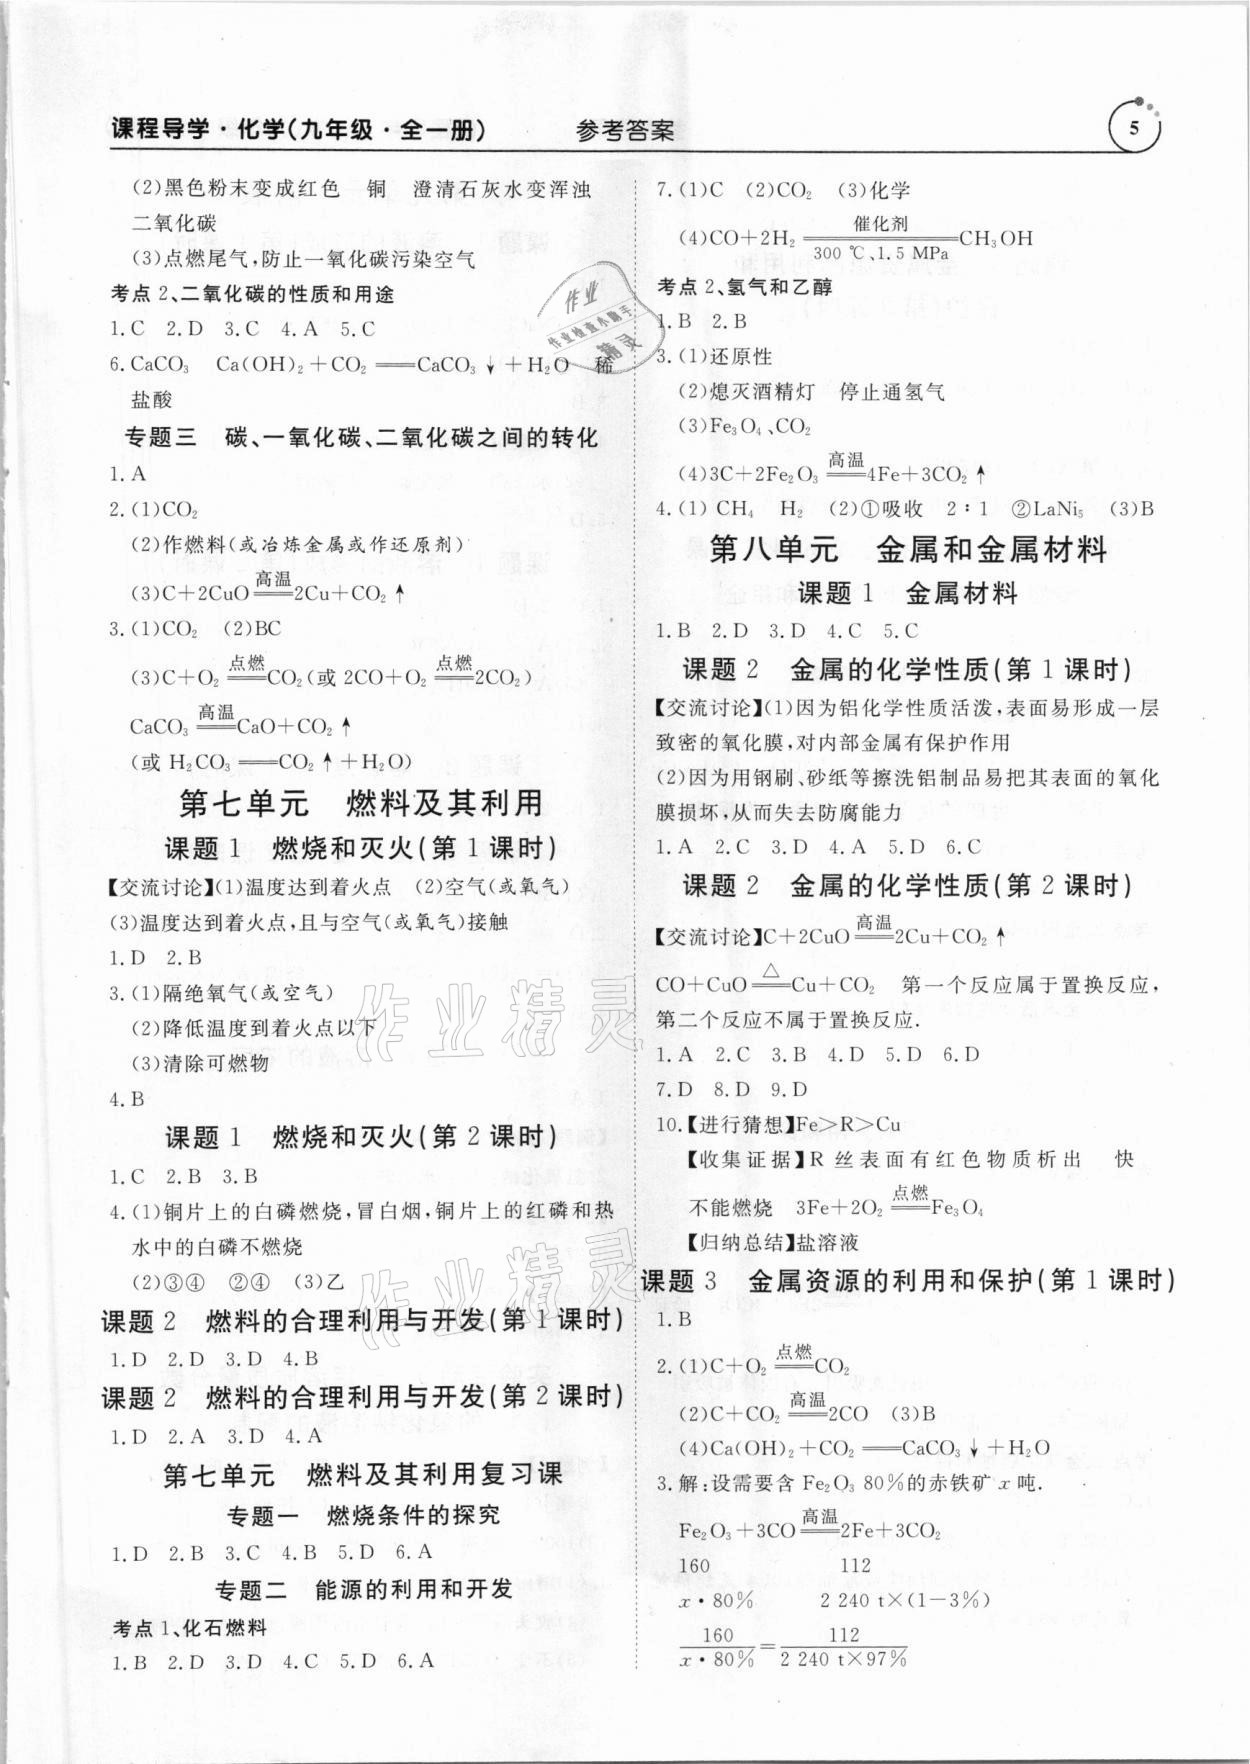 课程导学·化学(九年级·全一册) 参考答案 5
(2)黑色粉末变成红色 铜 澄清石灰水变浑浊
二氧化碳
(3)点燃尾气,防止一氧化碳污染空气
考点2、二氧化碳的性质和用途
1.C 2.D 3.C 4.A 5.C
6.CaCO₃ Ca(OH)₂+CO₂══CaCO₃↓+H₂O 稀
盐酸
专题三 碳、一氧化碳、二氧化碳之间的转化
1.A
2.(1)CO₂
(2)作燃料(或冶炼金属或作还原剂)
(3)C+2CuO ═高温═ 2Cu+CO₂↑
3.(1)CO₂ (2)BC
(3)C+O₂ ═点燃═ CO₂(或 2CO+O₂ ═点燃═ 2CO₂)
CaCO₃ ═高温═ CaO+CO₂↑
(或 H₂CO₃══CO₂↑+H₂O)
第七单元 燃料及其利用
课题1 燃烧和灭火(第1课时)
【交流讨论】(1)温度达到着火点 (2)空气(或氧气)
(3)温度达到着火点,且与空气(或氧气)接触
1.D 2.B
3.(1)隔绝氧气(或空气)
(2)降低温度到着火点以下
(3)清除可燃物
4.B
课题1 燃烧和灭火(第2课时)
1.C 2.B 3.B
4.(1)铜片上的白磷燃烧,冒白烟,铜片上的红磷和热
水中的白磷不燃烧
(2)③④ ②④ (3)乙
课题2 燃料的合理利用与开发(第1课时)
1.D 2.D 3.D 4.B
课题2 燃料的合理利用与开发(第2课时)
1.D 2.A 3.D 4.A
第七单元 燃料及其利用复习课
专题一 燃烧条件的探究
1.D 2.B 3.C 4.B 5.D 6.A
专题二 能源的利用和开发
考点1、化石燃料
1.B 2.D 3.D 4.C 5.D 6.A
7.(1)C (2)CO₂ (3)化学
(4)CO+2H₂ ═催化剂 / 300 ℃、1.5 MPa═ CH₃OH
考点2、氢气和乙醇
1.B 2.B
3.(1)还原性
(2)熄灭酒精灯 停止通氢气
(3)Fe₃O₄、CO₂
(4)3C+2Fe₂O₃ ═高温═ 4Fe+3CO₂↑
4.(1) CH₄ H₂ (2)①吸收 2∶1 ②LaNi₅ (3)B
第八单元 金属和金属材料
课题1 金属材料
1.B 2.D 3.D 4.C 5.C
课题2 金属的化学性质(第1课时)
【交流讨论】(1)因为铝化学性质活泼,表面易形成一层
致密的氧化膜,对内部金属有保护作用
(2)因为用钢刷、砂纸等擦洗铝制品易把其表面的氧化
膜损坏,从而失去防腐能力
1.A 2.C 3.D 4.A 5.D 6.C
课题2 金属的化学性质(第2课时)
【交流讨论】C+2CuO ═高温═ 2Cu+CO₂↑
CO+CuO ═△═ Cu+CO₂ 第一个反应属于置换反应,
第二个反应不属于置换反应.
1.A 2.C 3.B 4.D 5.D 6.D
7.D 8.D 9.D
10.【进行猜想】Fe>R>Cu
【收集证据】R 丝表面有红色物质析出 快
不能燃烧 3Fe+2O₂ ═点燃═ Fe₃O₄
【归纳总结】盐溶液
课题3 金属资源的利用和保护(第1课时)
1.B
2.(1)C+O₂ ═点燃═ CO₂
(2)C+CO₂ ═高温═ 2CO (3)B
(4)Ca(OH)₂+CO₂══CaCO₃↓+H₂O
3.解:设需要含 Fe₂O₃ 80%的赤铁矿 x 吨.
Fe₂O₃+3CO ═高温═ 2Fe+3CO₂
160 112
x·80% 2 240 t×(1-3%)
160/(x·80%)=112/(2 240 t×97%)
作业
作业检查小助手
精灵
作业精灵
作业精灵